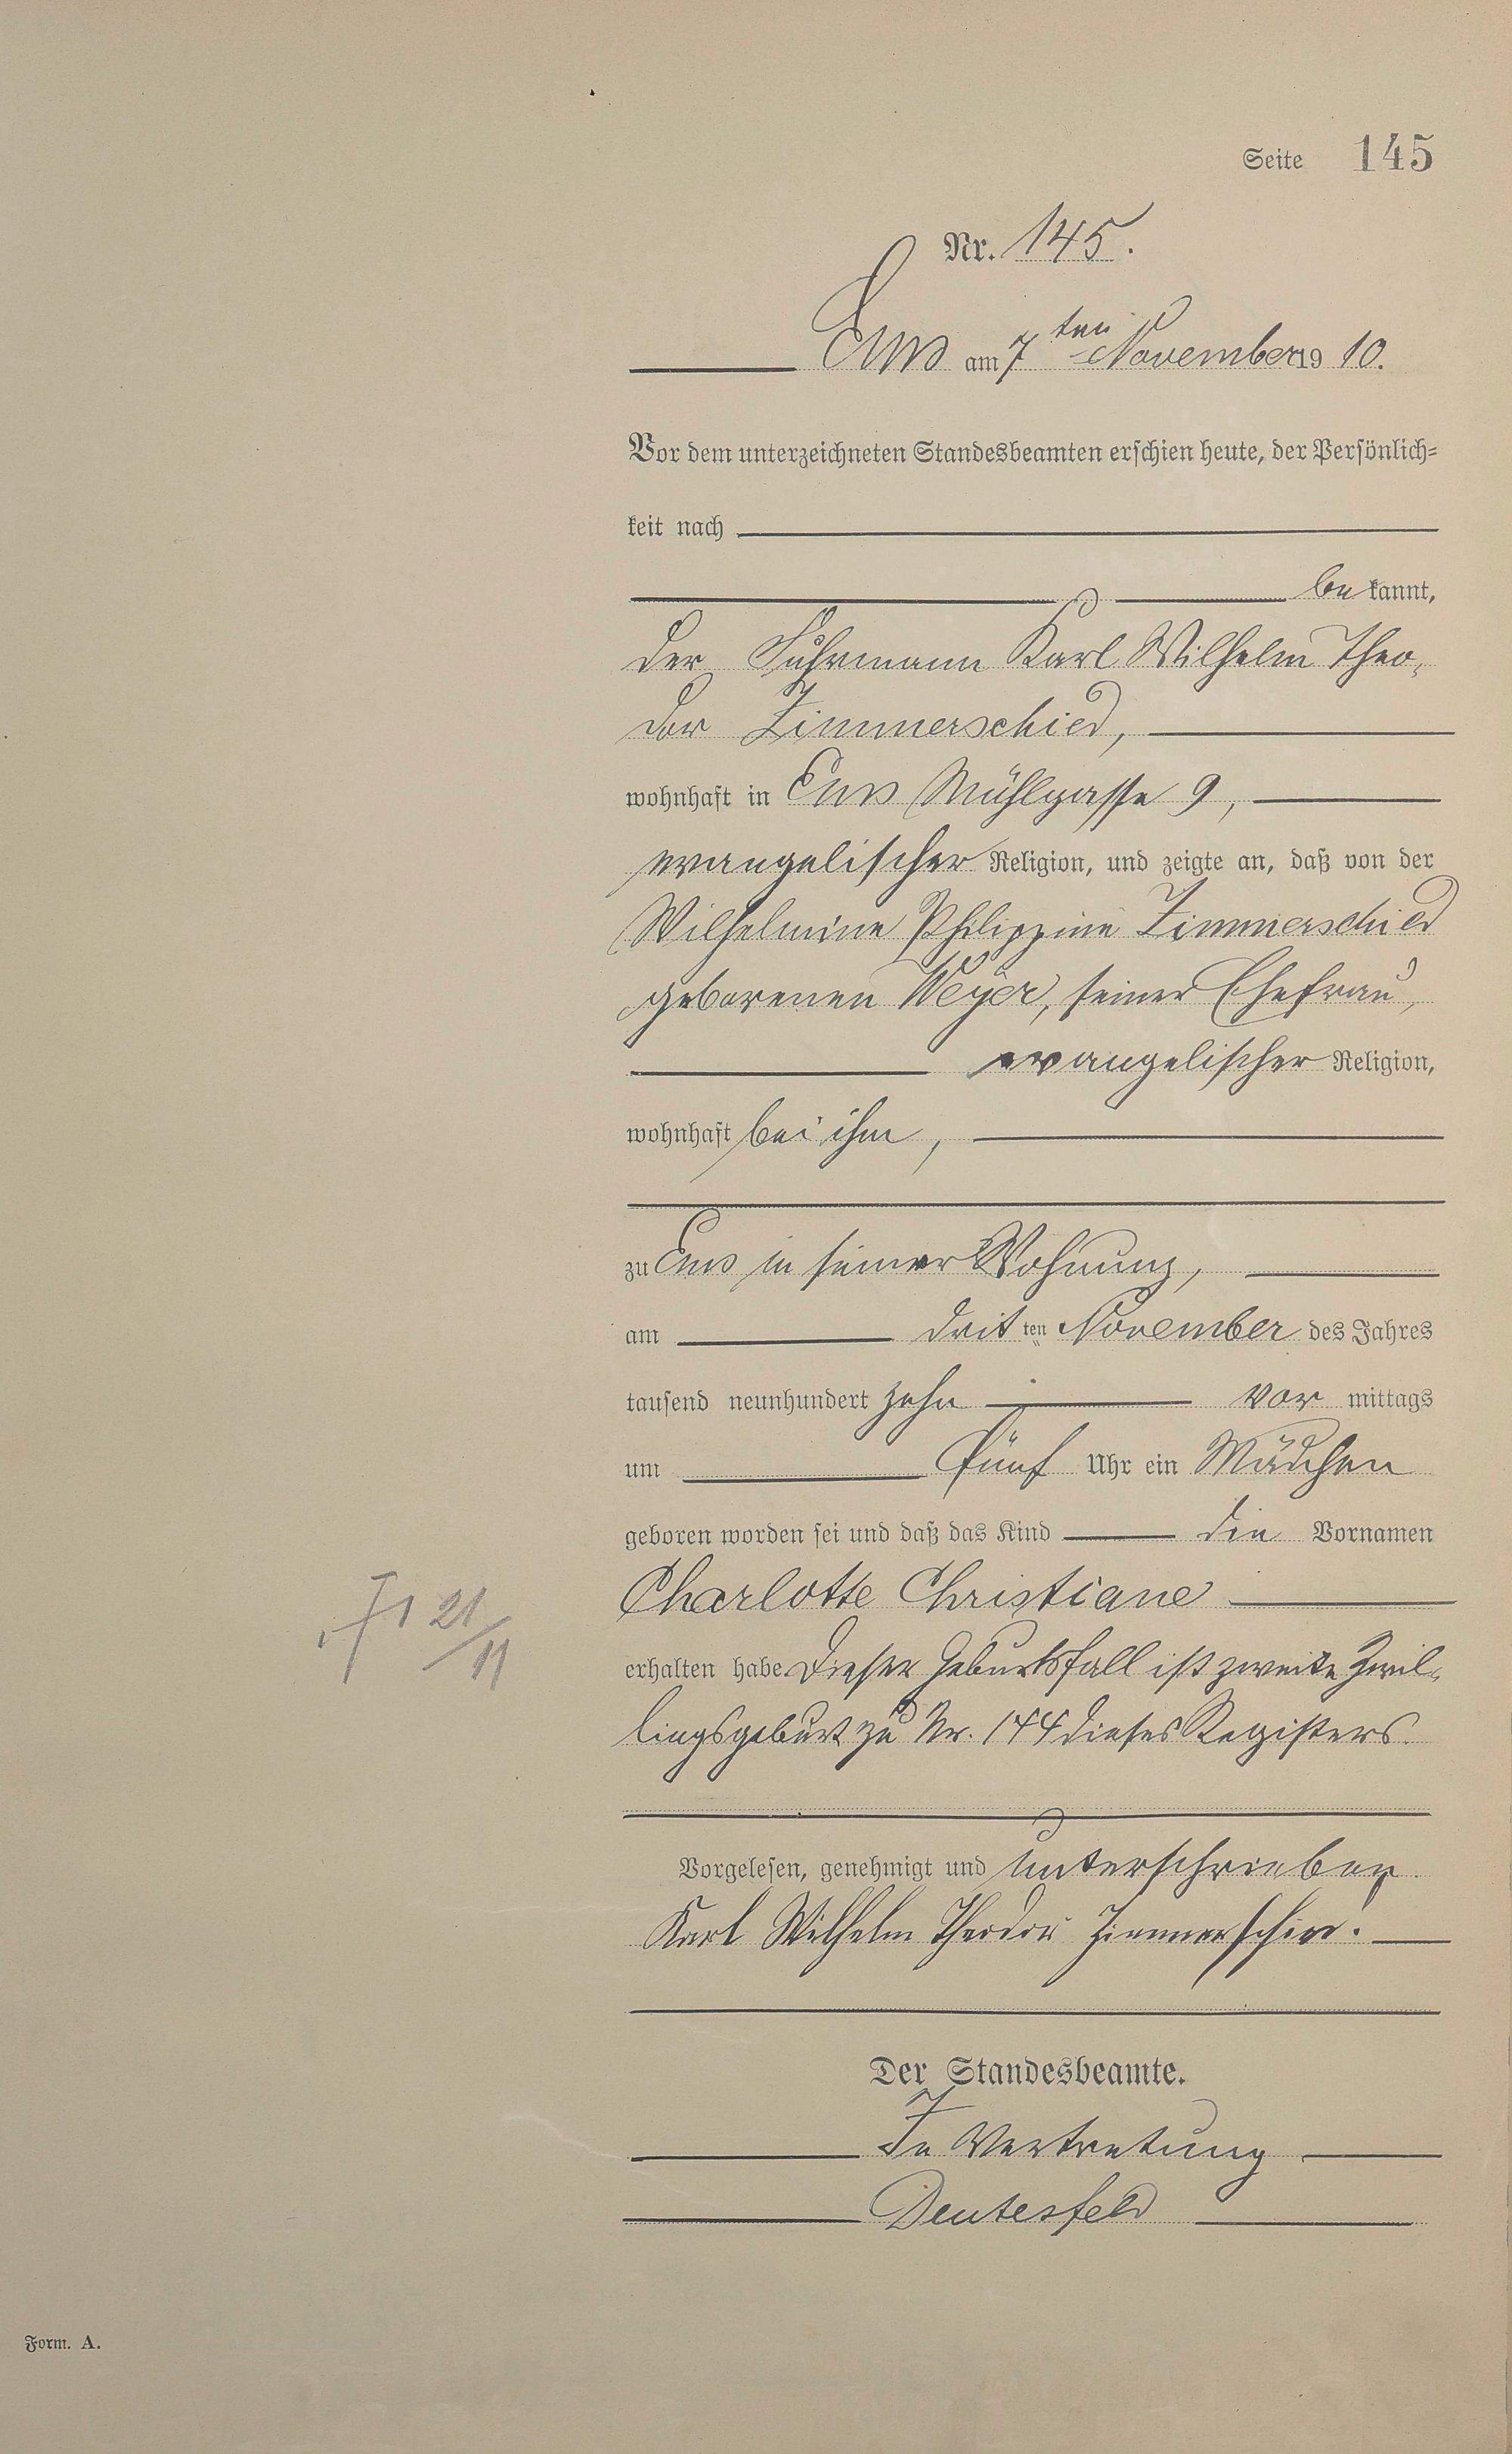 Seite 145
Nr. 145.
Ems am 7ten November 1910.
Vor dem unterzeichneten Standesbeamten erschien heute, der Persönlich-
keit nach
bekannt,
der Fuhrmann Karl Wilhelm Theo-
dor Zimmerschied,
wohnhaft in Ems Mühlgasse 9,
evangelischer Religion, und zeigte an, daß von der
Wilhelmine Philippine Zimmerschied
geborenen Weyer, seiner Ehefrau,
evangelischer Religion,
wohnhaft bei ihm,
zu Ems in seiner Wohnung,
am dritten November des Jahres
tausend neunhundert zehn vormittags
um fünf Uhr ein Mädchen
geboren worden sei und daß das Kind die Vornamen
Charlotte Christiane
erhalten habe Dieser Geburtsfall ist zweite Zwil-
lingsgeburt zu Nr. 144 dieses Registers.
Vorgelesen, genehmigt und unterschrieben
Karl Wilhelm Theodor Zimmerschied.
Der Standesbeamte.
In Vertretung
Deutesfeld
21/11
Form. A.